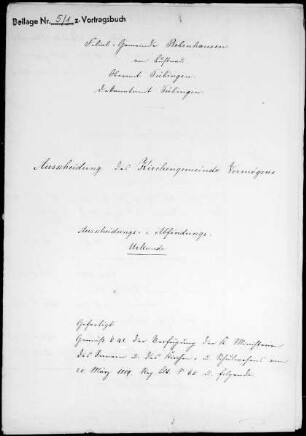 Beilage Nr. 5/1 z. Vortragsbuch
Filial-Gemeinde Bebenhausen
von Lustnau
Oberamt Tübingen
Dekanatamt Tübingen.
Ausscheidung des Kirchengemeinde Vermögens
Ausscheidungs- u. Abfindungs-
Urkunde
Gefertigt
Gemäß der Verfügung der K. Ministerien
des Innern u. des Kirchen- u. Schulwesens vom
März 1889. Reg. Bl. S. 62 u. folgende.